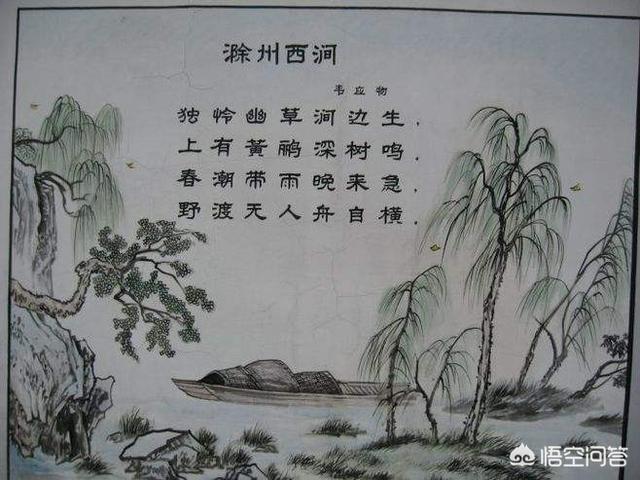 滁州西涧
韦应物
独怜幽草涧边生，
上有黄鹂深树鸣，
春潮带雨晚来急，
野渡无人舟自横，
悟空问答